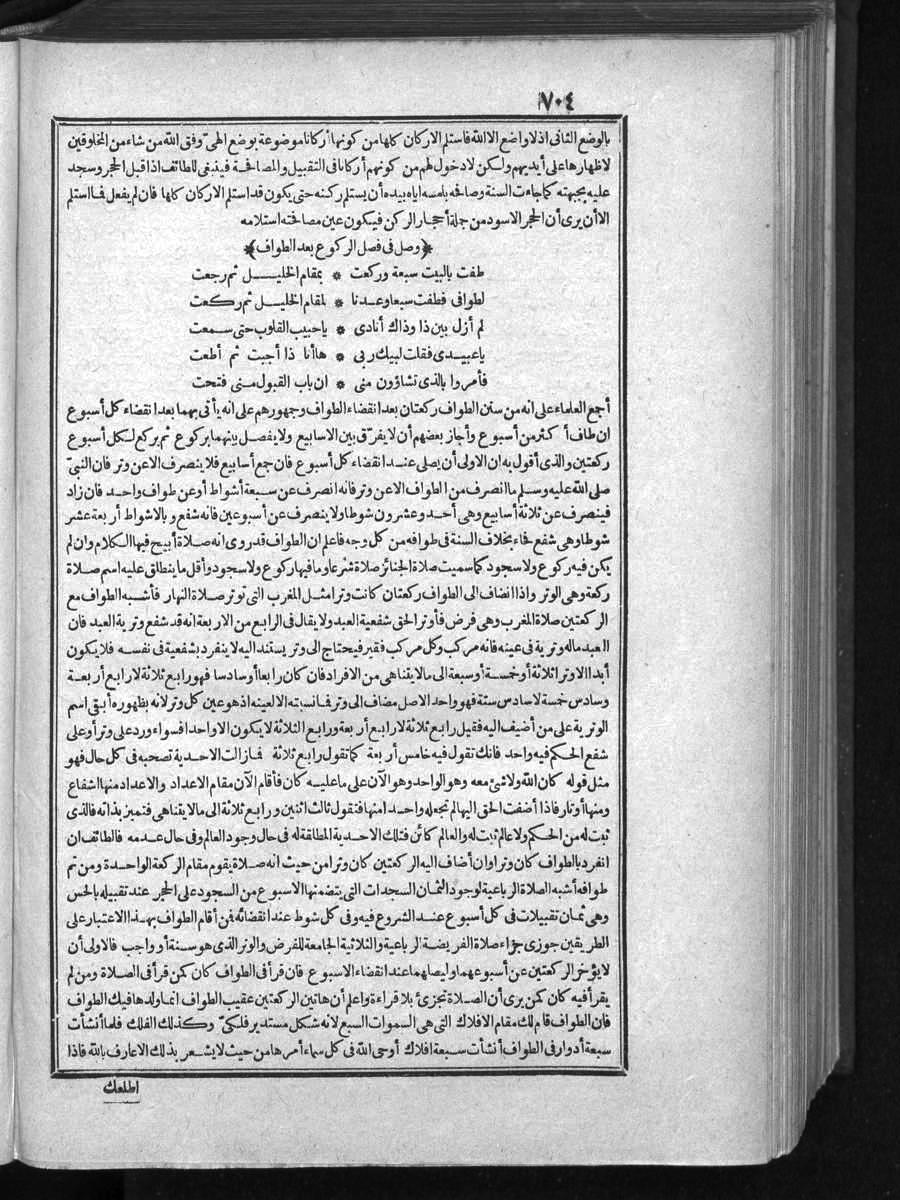 ٧٠٤
بالوضع الثانى اذلا واضع الا الله فاستلم الاركان كلها من كونها أركانا موضوعة بوضع الهىّ وفق الله من شاء من المخلوقين
لاظهارها على أيديهم ولكن لا دخول لهم من كونهم أركانا فى التقبيل والمصافحة فينبغى للطائف اذا قبل الحجر وسجد
عليه بجبهته كما جاءت السنة وصافحه بلمسه اياه بيده أن يستلم ركنه حتى يكون قد استلم الاركان كلها فان لم يفعل فما استلم
الا أن يرى أن الحجر الاسود من جملة أحجار الركن فيكون عين مصافحته استلامه
﴿وصل فى فصل الركوع بعد الطواف﴾
طفت بالبيت سبعة وركعت * بمقام الخليل ثم رجعت
لطوافى فطفت سبعا وعدنا * لمقام الخليل ثم ركعت
لم أزل بين ذا وذاك أنادى * يا حبيب القلوب حتى سمعت
يا عبيدى فقلت لبيك ربى * ها أنا ذا أجبت ثم أطعت
فأمروا بالذى تشاؤون منى * ان باب القبول منى فتحت
أجمع العلماء على انه من سنن الطواف ركعتان بعد انقضاء الطواف وجمهورهم على انه يأتى بهما بعد انقضاء كل أسبوع
ان طاف أكثر من أسبوع وأجاز بعضهم أن لا يفرّق بين الاسابيع ولا يفصل بينهما بركوع ثم يركع لكل أسبوع
ركعتين والذى أقول به ان الاولى أن يصلى عند انقضاء كل أسبوع فان جمع أسابيع فلا ينصرف الا عن وتر فان النبىّ
صلى الله عليه وسلم ما انصرف من الطواف الا عن وتر فانه انصرف عن سبعة أشواط أو عن طواف واحد فان زاد
فينصرف عن ثلاثة أسابيع وهى أحد وعشرون شوطا ولا ينصرف عن أسبوعين فانه شفع وبالاشواط أربعة عشر
شوطا وهى شفع فجاء بخلاف السنة فى طوافه من كل وجه فاعلم ان الطواف قد روى انه صلاة أبيح فيها الكلام وان لم
يكن فيه ركوع ولا سجود كما سميت صلاة الجنائز صلاة شرعا وما فيها ركوع ولا سجود وأقل ما ينطلق عليه اسم صلاة
ركعة وهى الوتر واذا انضاف الى الطواف ركعتان كانت وترا مثل المغرب التى توتر صلاة النهار فأشبه الطواف مع
الركعتين صلاة المغرب وهى فرض فأوتر الحق شفعية العبد ولا يقال فى الرابع من الاربعة انه قد شفع وترية العبد فان
العبد ماله وترية فى عينه فانه مركب وكل مركب فقير فيحتاج الى وتر يستند اليه لا ينفرد بشفعية فى نفسه فلا يكون
أبدا الا وترا ثلاثة أو خمسة أو سبعة الى ما لا يتناهى من الافراد فان كان رابعا أو سادسا فهو رابع ثلاثة لا رابع أربعة
وسادس خمسة لا سادس ستة فهو واحد الاصل مضاف الى وتر فما نسبته الا لعينه اذ هو عين كل وتر لانه بظهوره أبقى اسم
الوترية على من أضيف اليه فقيل رابع ثلاثة لا رابع أربعة ورابع الثلاثة لا يكون الا واحدا فسواء ورد على وتر أو على
شفع الحكم فيه واحد فانك تقول فيه خامس أربعة كما تقول رابع ثلاثة فما زالت الاحدية تصحبه فى كل حال فهو
مثل قوله كان الله ولا شئ معه وهو الواحد وهو الآن على ما عليه كان فأقام الآن مقام الاعداد والاعداد منها اشفاع
ومنها أوتار فاذا أضفت الحق اليها لم تجعله واحدا منها فتقول ثالث اثنين ورابع ثلاثة الى ما لا يتناهى فتميز بذاته فالذى
ثبت له من الحكم ولا عالم ثبت له والعالم كائن فتلك الاحدية المطلقة له فى حال وجود العالم وفى حال عدمه فالطائف ان
انفرد بالطواف كان وترا وان أضاف اليه الركعتين كان وترا من حيث انه صلاة يقوم مقام الركعة الواحدة ومن تم
طوافه أشبه الصلاة الرباعية لوجود الثمان السجدات التى يتضمنها الاسبوع من السجود على الحجر عند تقبيله بالحس
وهى ثمان تقبيلات فى كل أسبوع عند الشروع فيه وفى كل شوط عند انقضائه فمن أقام الطواف بهذا الاعتبار على
الطريقين جوزى جزاء صلاة الفريضة الرباعية والثلاثية الجامعة للفرض والوتر الذى هو سنة أو واجب فالاولى أن
لا يؤخر الركعتين عن أسبوعهما وليصلهما عند انقضاء الاسبوع فان قرأ فى الطواف كان كمن قرأ فى الصلاة ومن لم
يقرأ فيه كان كمن يرى أن الصلاة تجزئ بلا قراءة واعلم أن هاتين الركعتين عقيب الطواف انما ولدها فيك الطواف
فان الطواف قام لك مقام الافلاك التى هى السموات السبع لانه شكل مستدير فلكىّ وكذلك الفلك فلما أنشأت
سبعة أدوار فى الطواف أنشأت سبعة افلاك أوحى الله فى كل سماء أمرها من حيث لا يشعر بذلك الا عارف بالله فاذا
اطلعك